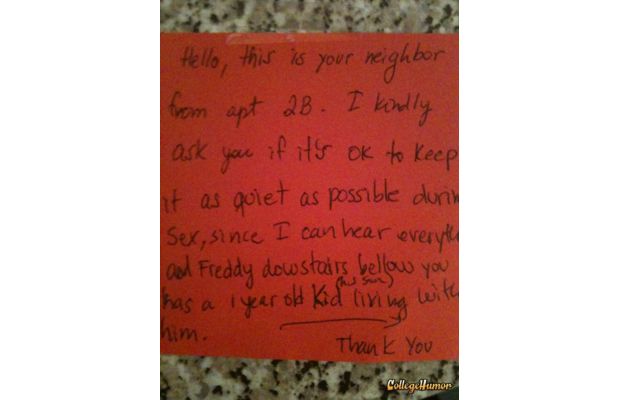 Hello, this is your neighbor
from apt 2B. I kindly
ask you if it's OK to keep
it as quiet as possible durin
Sex, since I can hear everyth
and Freddy dowstairs bellow you
(his son)
has a 1 year old kid living with
him.
Thank You
CollegeHumor